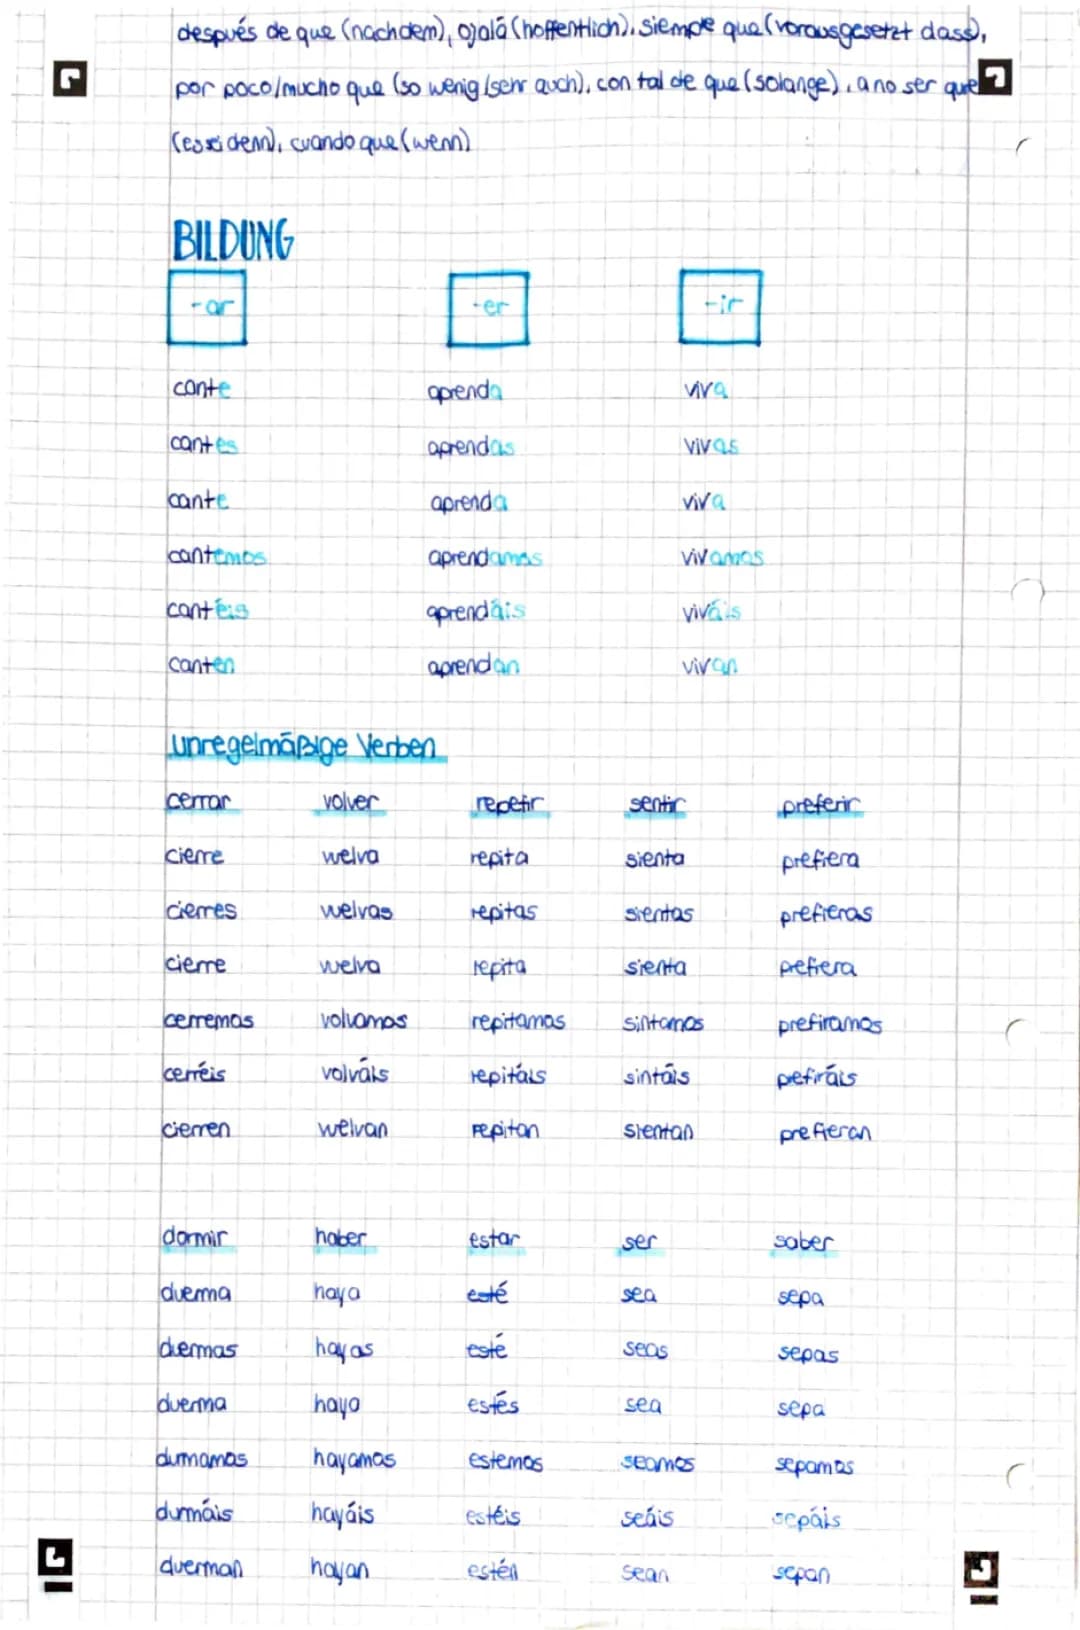 después de que (nachdem), ojalá (hoffentlich), siempre que (vorausgesetzt dass),
por poco/mucho que (so wenig/sehr auch), con tal de que (solange), a no ser que
(es sei denn), cuando que (wenn)
BILDUNG
-ar -er -ir
cante aprenda viva
cantes aprendas vivas
cante aprenda viva
cantemos aprendamos vivamos
cantéis aprendáis viváis
canten aprendan vivan
unregelmäßige Verben
cerrar volver repetir sentir preferir
cierre vuelva repita sienta prefiera
cierres vuelvas repitas sientas prefieras
cierre vuelva repita sienta prefiera
cerremos volvamos repitamos sintamos prefiramos
cerréis volváis repitáis sintáis prefiráis
cierren vuelvan repitan sientan prefieran
dormir haber estar ser saber
duerma haya esté sea sepa
duermas hayas esté seas sepas
duerma haya estés sea sepa
durmamos hayamos estemos seamos sepamos
durmáis hayáis estéis seáis sepáis
duerman hayan estén sean sepan